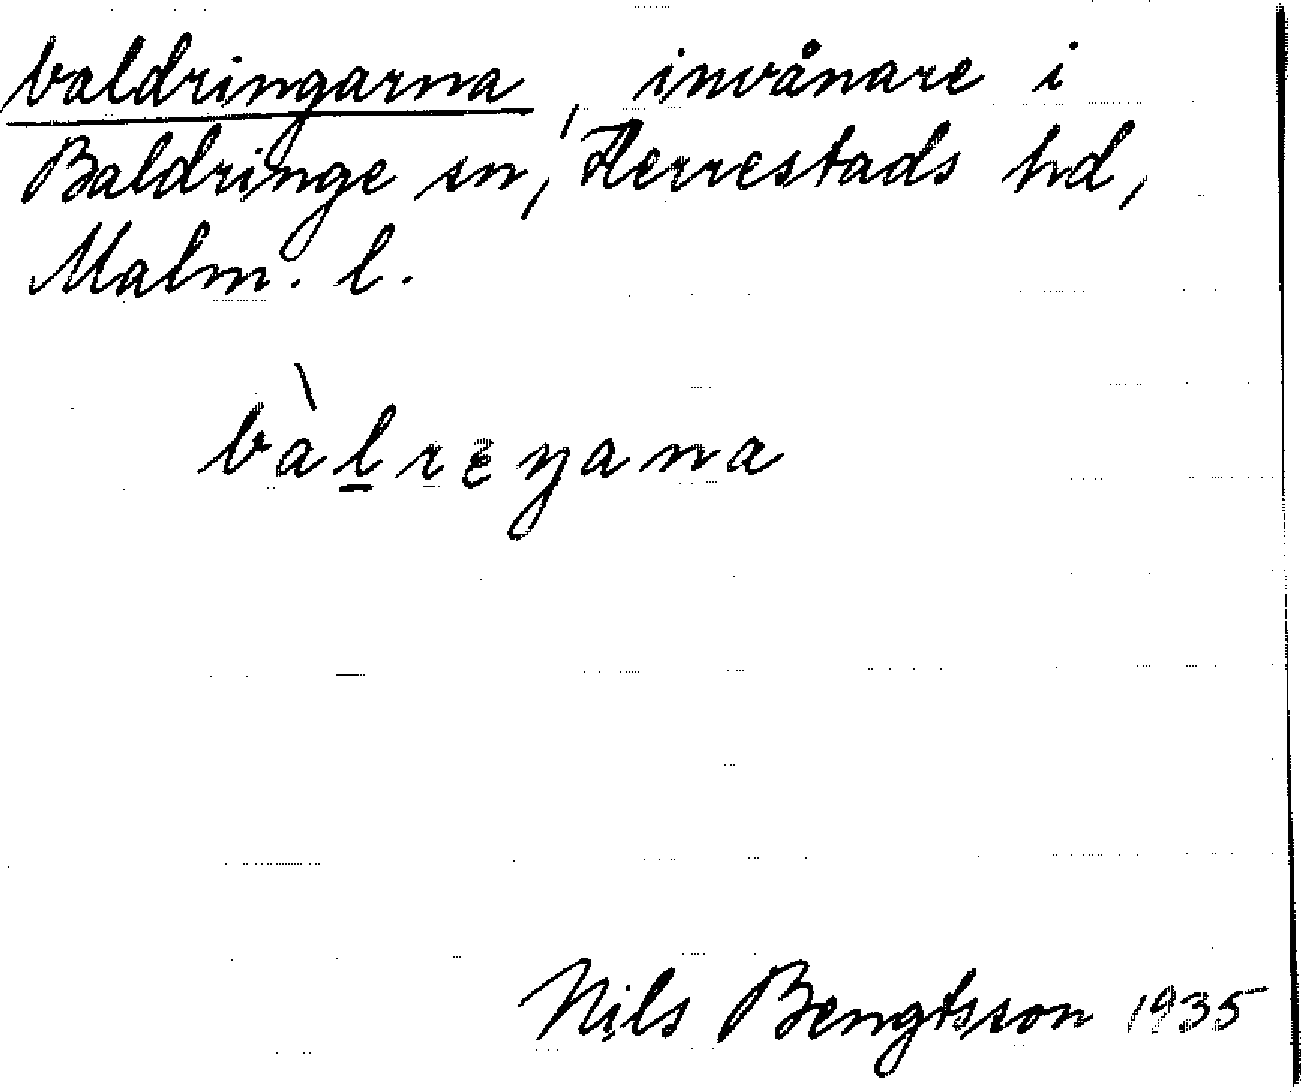 baldringarna, invånare i
Baldringe sn, Herrestads hd,
Malm. l.
bàlrɛŋana
Nils Bengtsson 1935